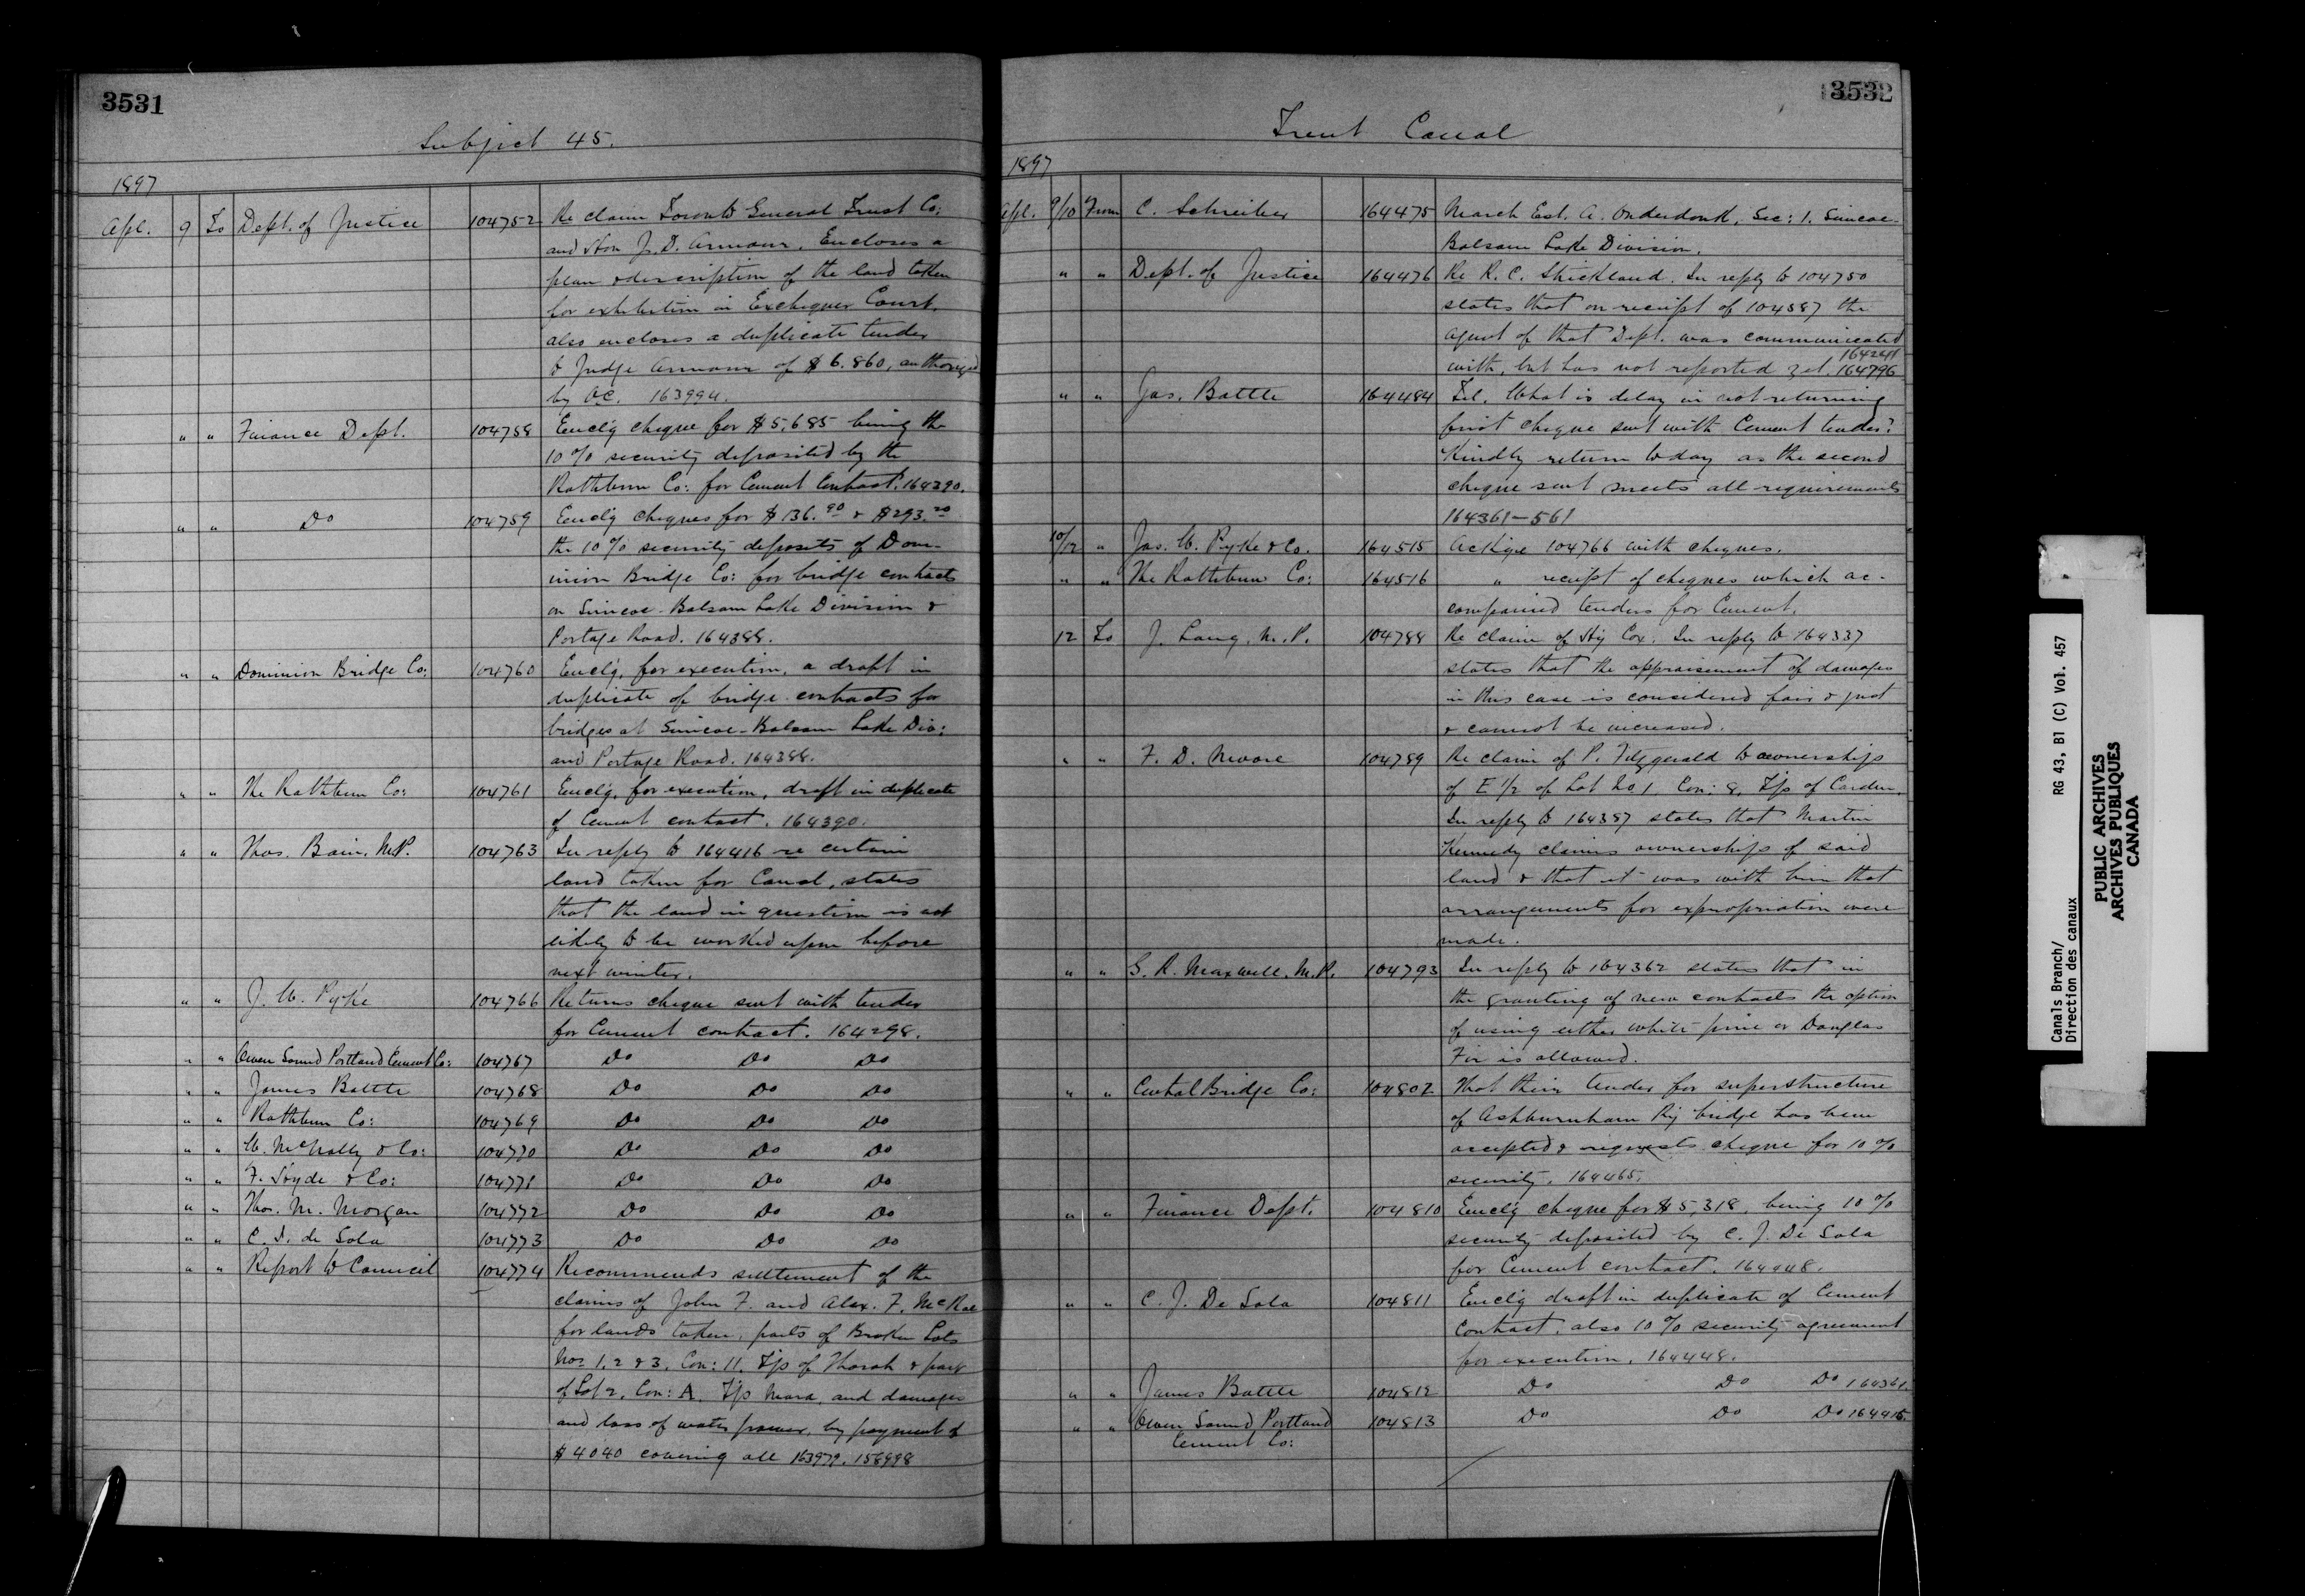 3531
Subject 45.
1897
Apl. 9 To Dept. of Justice 104752 Re claim Toronto General Trust Co:
and Hon J. D. Armour. Encloses a
plan & description of the land taken
for exhibition in Exchequer Court.
also encloses a duplicate tender
to Judge Armour of $6.860, authorized
by O.C. 163994.
" " Finance Dept. 104758 Encl'g cheque for $5,685 being the
10% security deposited by the
Rathbun Co: for Cement Contract. 164390.
" " Do 104759 Encl'g cheques for $136.90 & $293.20
the 10% security deposits of Dom-
inion Bridge Co: for bridge contracts
on Simcoe-Balsam Lake Division &
Portage Road. 164388.
" " Dominion Bridge Co: 104760 Encl'g, for execution, a draft in
duplicate of bridge contracts for
bridges at Simcoe-Balsam Lake Div:
and Portage Road. 164388.
" " The Rathbun Co: 104761 Encl'g, for execution, draft in duplicate
of Cement contract. 164390.
" " Thos. Bain. M.P. 104763 In reply to 164416 re certain
land taken for Canal, states
that the land in question is not
likely to be worked upon before
next winter.
" " J. W. Pyke 104766 Returns cheque sent with tender
for Cement contract. 164298.
" " Owen Sound Portland Cement Co: 104767 Do Do Do
" " James Battle 104768 Do Do Do
" " Rathbun Co: 104769 Do Do Do
" " W. McNally & Co: 104770 Do Do Do
" " F. Hyde & Co: 104771 Do Do Do
" " Thos. M. Morgan 104772 Do Do Do
" " C. J. de Sola 104773 Do Do Do
" " Report to Council 104774 Recommends settlement of the
claims of John F. and Alex. F. McRae
for lands taken, parts of Broken Lots
Nos 1, 2 & 3, Con: 11. T'p of Thorah & part
of Lot 2, Con: A. T'p Mara, and damages
and loss of water power, by payment of
$4040 covering all 163979. 158998
3532
Trent Canal
1897
Apl. 9/10 From C. Schreiber 164475 March Est. A. Onderdonk, Sec: 1. Simcoe-
Balsam Lake Division.
" " Dept. of Justice 164476 Re R. C. Strickland. In reply to 104750
states that on receipt of 104587 the
agent of that Dept. was communicated
164241
with, but has not reported yet. 164796
" " Jas. Battle 164484 Tel. What is delay in not returning
first cheque sent with Cement tender?
Kindly return today as the second
cheque sent meets all requirements
164361-561
10/12 " Jas. W. Pyke & Co. 164515 Ackge 104766 with cheques.
" " The Rathbun Co: 164516 " receipt of cheques which ac-
companied tenders for Cement.
12 To J. Lang, M.P. 104788 Re claim of Hy Cox. In reply to 164337
states that the appraisement of damages
in this case is considered fair & just
& cannot be increased.
" " F. D. Moore 104789 Re claim of P. Fitzgerald to ownership
of E 1/2 of Lot No 1 Con: 8, T'p of Carden.
In reply to 164357 states that Martin
Kennedy claims ownership of said
land & that it was with him that
arrangements for expropriation were
made.
" " G. R. Maxwell, M.P. 104793 In reply to 164362 states that in
the granting of new contracts the option
of using either white pine or Douglas
Fir is allowed.
" " Central Bridge Co: 104802 That their tender for superstructure
of Ashburnham Ry bridge has been
accepted & requests cheque for 10%
security. 164465.
" " Finance Dept. 104810 Encl'g cheque for $5,318. being 10%
security deposited by C. J. De Sola
for Cement contract. 164448.
" " C. J. De Sola 104811 Encl'g draft in duplicate of Cement
Contract, also 10% security agreement
for execution. 164448.
" " James Battle 104812 Do Do Do 164361.
" " Owen Sound Portland 104813 Do Do Do 164415.
Cement Co:
Canals Branch/
Direction des canaux
RG 43, B1 (C) Vol. 457
PUBLIC ARCHIVES
ARCHIVES PUBLIQUES
CANADA